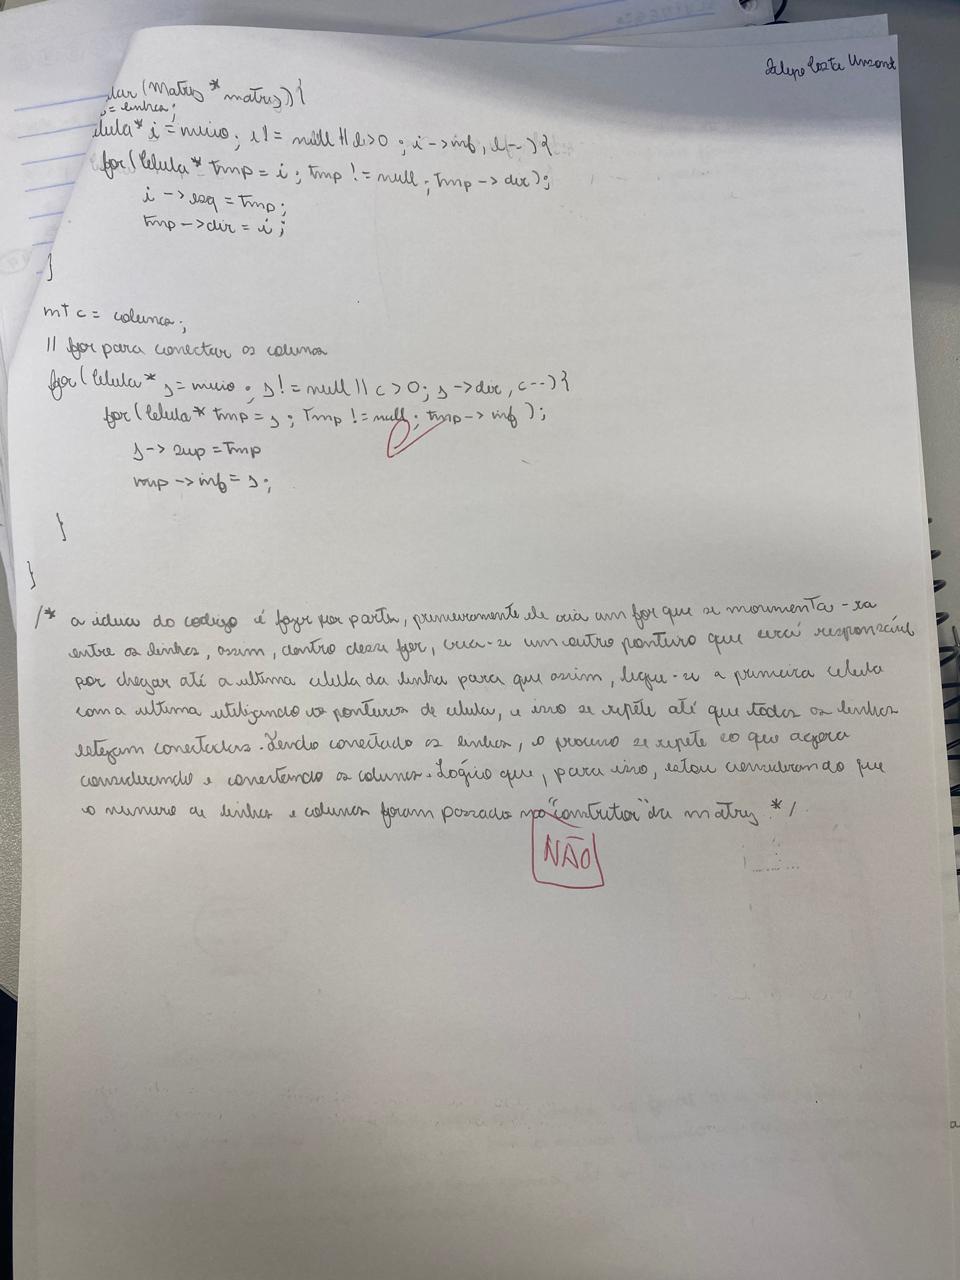 Felipe Costa Unsonst
ular (Matriz * matriz)) {
= linha;
élula* i = inicio; i != null || l>0 ; i->inf, l--) {
for (Celula* tmp = i ; tmp != null ; tmp -> dir);
i -> esq = tmp;
tmp -> dir = i ;
}
int c = coluna;
// for para conectar as colunas
for (Celula* s = inicio ; s != null || c > 0; s -> dir, c--) {
for (Celula* tmp = s ; tmp != null ; tmp -> inf );
s -> sup = tmp
tmp -> inf = s ;
}
}
/* a ideia do codigo é fazer por partes, primeiramente ele cria um for que se movimenta-ra
entre as linhas, assim, dentro desse for, cria-se um outro ponteiro que será responsável
por chegar até a ultima celula da linha para que assim, ligue-se a primeira celula
com a ultima utilizando os ponteiros de celula, e isso se repete até que todas as linhas
estejam conectadas. Tendo conectado as linhas, o processo se repete so que agora
considerando e conectando as colunas. Lógico que, para isso, estou considerando que
o numero de linhas e colunas foram passado no "contrutor" da matriz */
NÃO